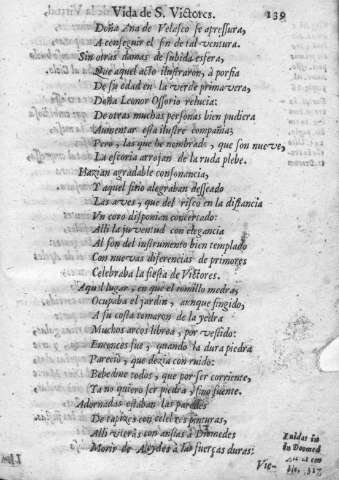 Vida de S. Victores. 139
Doña Ana de Velasco se apressura,
A conseguir el fin de tal ventura.
Sin otras damas de subida esfera,
Que aquel acto ilustraron, à porfia
De su edad en la verde primavera,
Doña Leonor Ossorio relucia:
De otras muchas personas bien pudiera
Aumentar esta ilustre compañia;
Pero, las que he nombrado, que son nueve,
La escoria arrojan de la ruda plebe.
Hazian agradable consonancia,
Y aquel sitio alegraban desseado
Las aves, que del risco en la distancia
Un coro disponian concertado:
Alli la juventud con elegancia
Al son del instrumento bien templado
Con nuevas diferencias de primores
Celebraba la fiesta de Victores.
Aqui lugar, en que el tomillo medra,
Ocupaba el jardin, aunque fingido,
A su costa tomaron de la yedra
Muchos arcos librea, por vestido:
Entonces fue, quando la dura piedra
Pareciò, que dezia con ruido:
Bebed todos, que por ser corriente,
Ya no quiero ser piedra, sino fuente.
Adornadas estaban las paredes
De tapizes con celebres pinturas,
Alli vieras con ansias à Diomedes
Morir de Alcydes à las fuerças duras:
in Diomed
Vic-